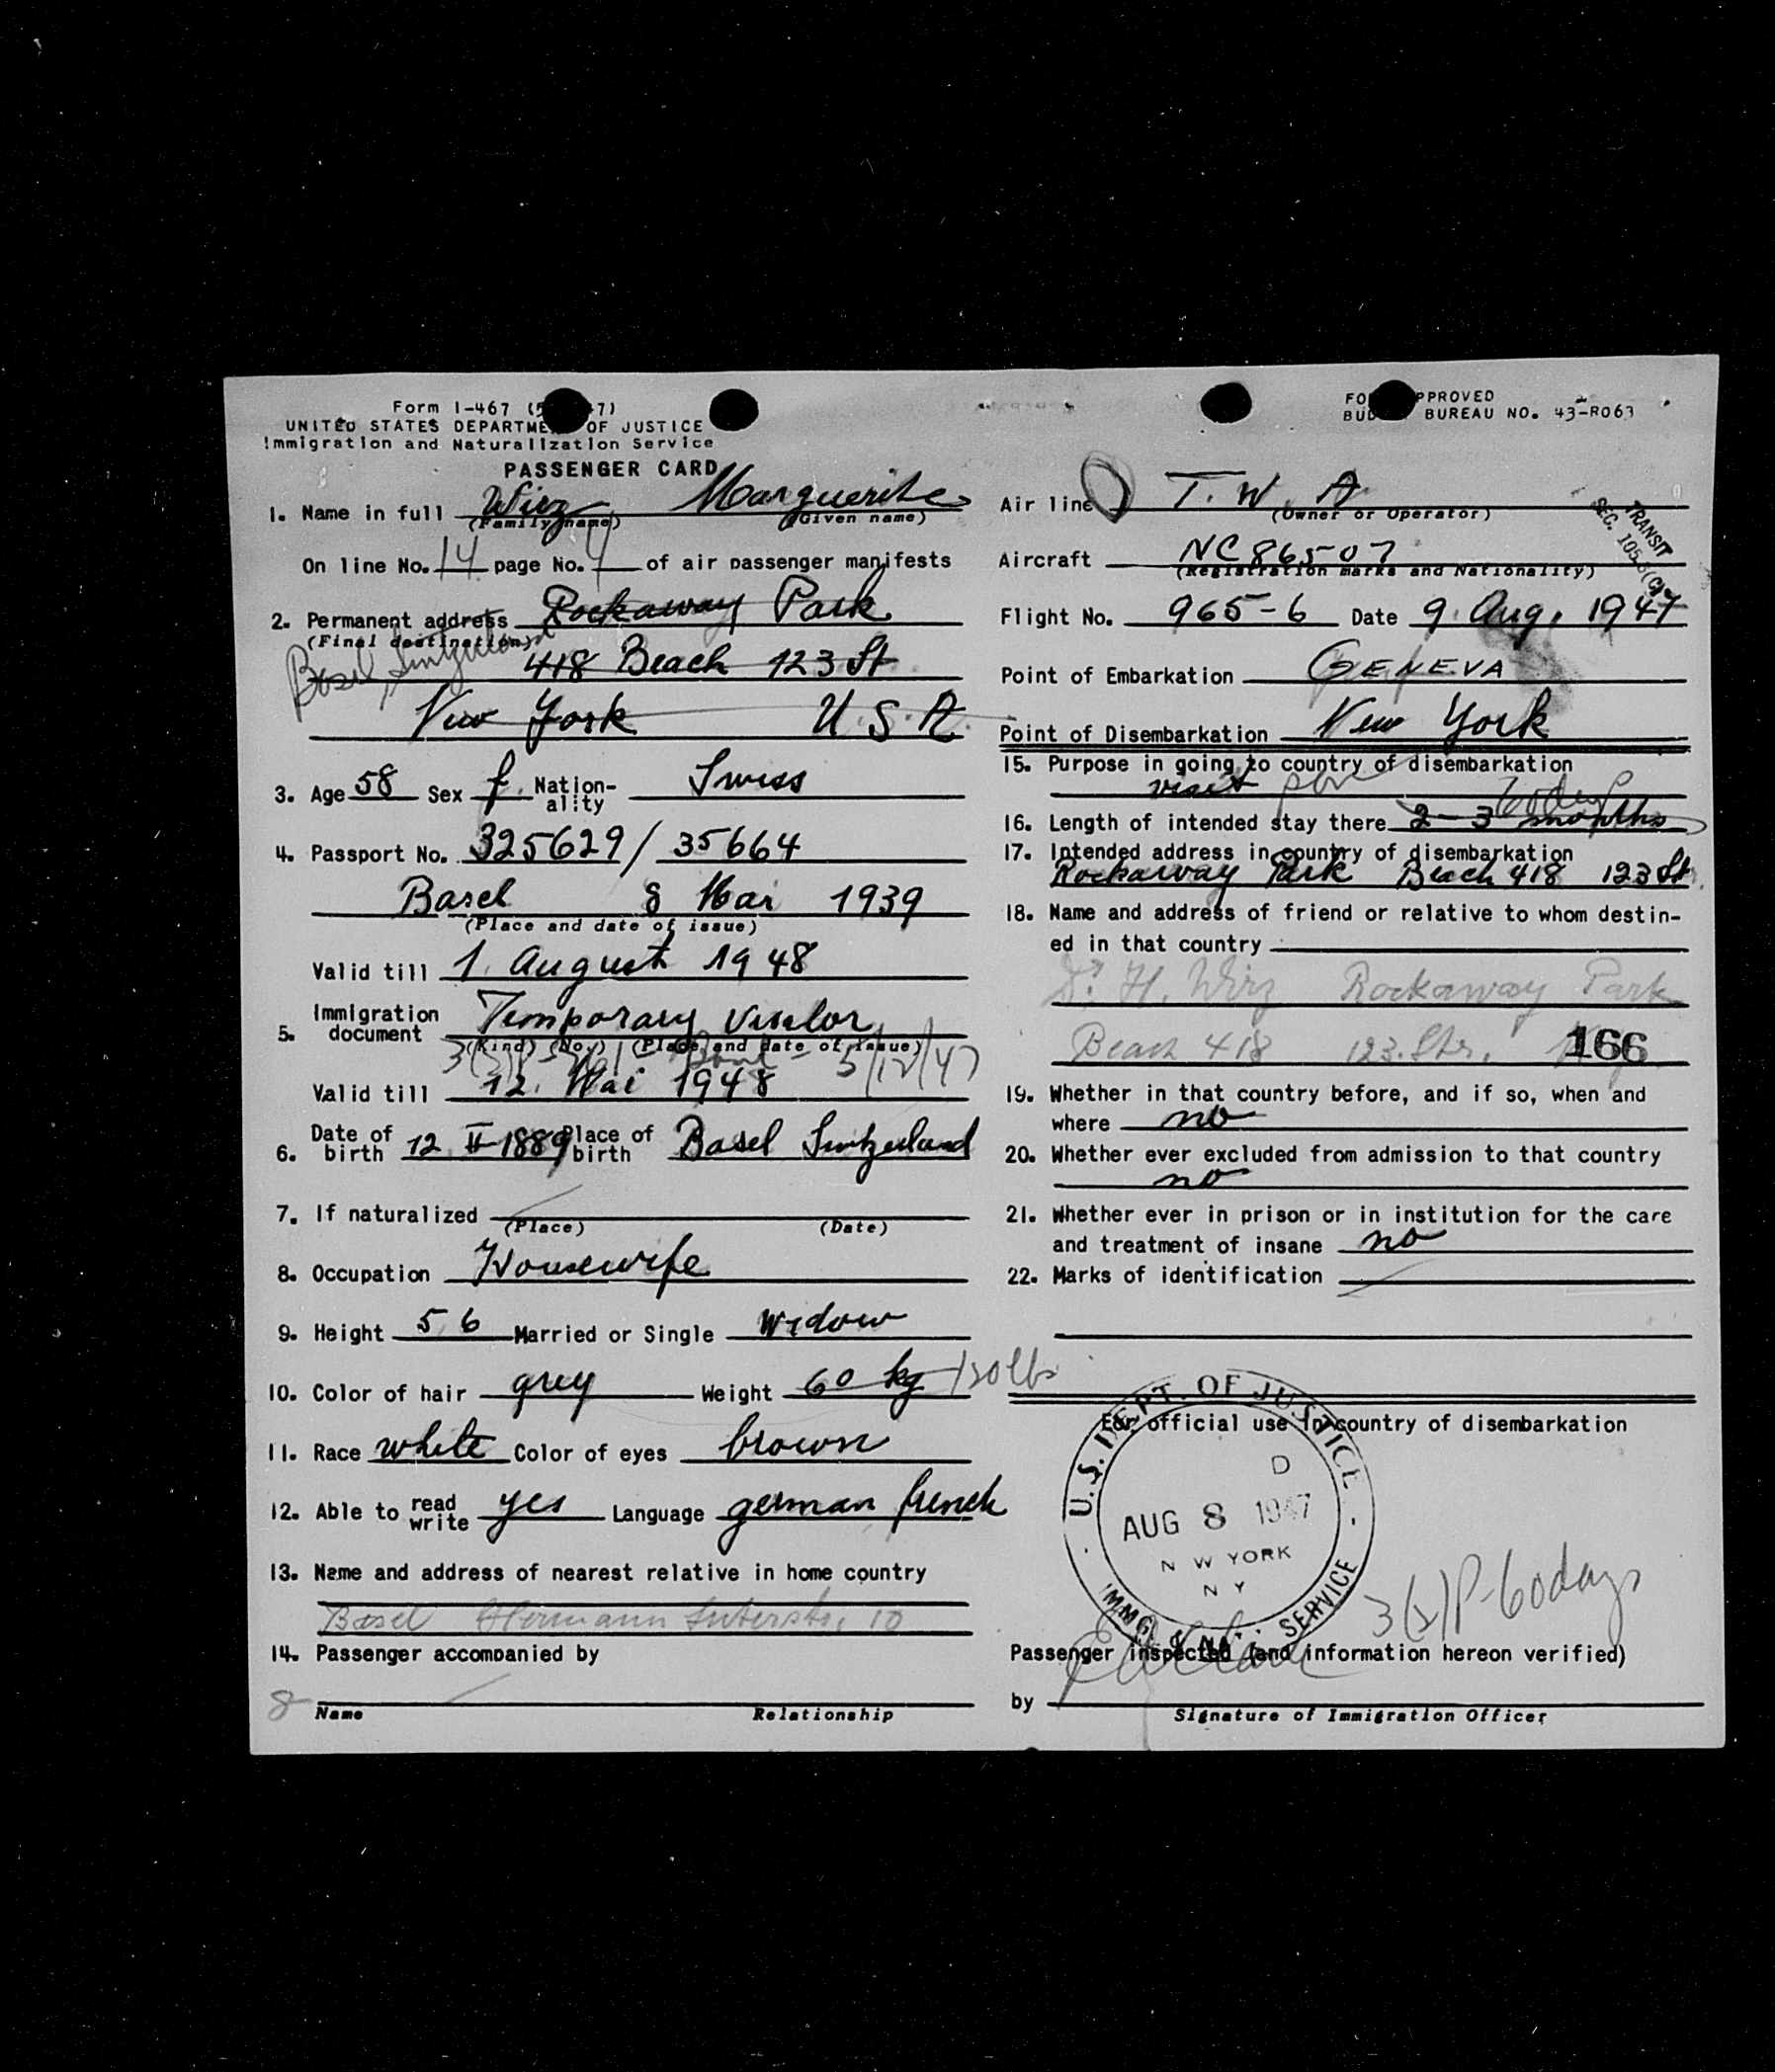 Form I-467 (5 7)
UNITED STATES DEPARTME OF JUSTICE
Immigration and Naturalization Service
PASSENGER CARD
1. Name in full Wirz Marguerite
(Family name) (Given name)
On line No. 14 page No. 4 of air passenger manifests
2. Permanent address Rockaway Park
(Final destination)
Basel, Switzerland
418 Beach 123 St
New York U.S.A.
3. Age 58 Sex f. Nation-ality Swiss
4. Passport No. 325629/35664
Basel 8 Mai 1939
(Place and date of issue)
Valid till 1. August 1948
5. Immigration document Temporary visitor
(Kind) (No.) (Place and date of issue)
5/12/47
Valid till 12. Mai 1948
6. Date of birth 12 II 1889 Place of birth Basel Switzerland
7. If naturalized
(Place) (Date)
8. Occupation Housewife
9. Height 5,6 Married or Single Widow
10. Color of hair grey Weight 60 kg 130 lbs
11. Race white Color of eyes brown
12. Able to read write yes Language german french
13. Name and address of nearest relative in home country
Basel Hermann Suterstr. 10
14. Passenger accompanied by
8
Name Relationship
FO PPROVED
BUD BUREAU NO. 43-R063
Air line T.W.A.
(Owner or Operator)
TRANSIT
SEC. 105.3(C)
Aircraft NC86507
(Registration marks and Nationality)
Flight No. 965-6 Date 9. Aug. 1947
Point of Embarkation GENEVA
Point of Disembarkation New York
15. Purpose in going to country of disembarkation
visit
60 days
16. Length of intended stay there 2-3 months
17. Intended address in country of disembarkation
Rockaway Park Beach 418 123 St.
18. Name and address of friend or relative to whom destin-
ed in that country
H. Wirz Rockaway Park
Beach 418 123. Str. 166
19. Whether in that country before, and if so, when and
where no
20. Whether ever excluded from admission to that country
no
21. Whether ever in prison or in institution for the care
and treatment of insane no
22. Marks of identification
For official use in country of disembarkation
U.S. DEPT. OF JUSTICE
D
AUG 8 1947
N W YORK
N Y
IMMG. & NAT. SERVICE
3(2)P-60 days
Passenger inspected (and information hereon verified)
by
Signature of Immigration Officer